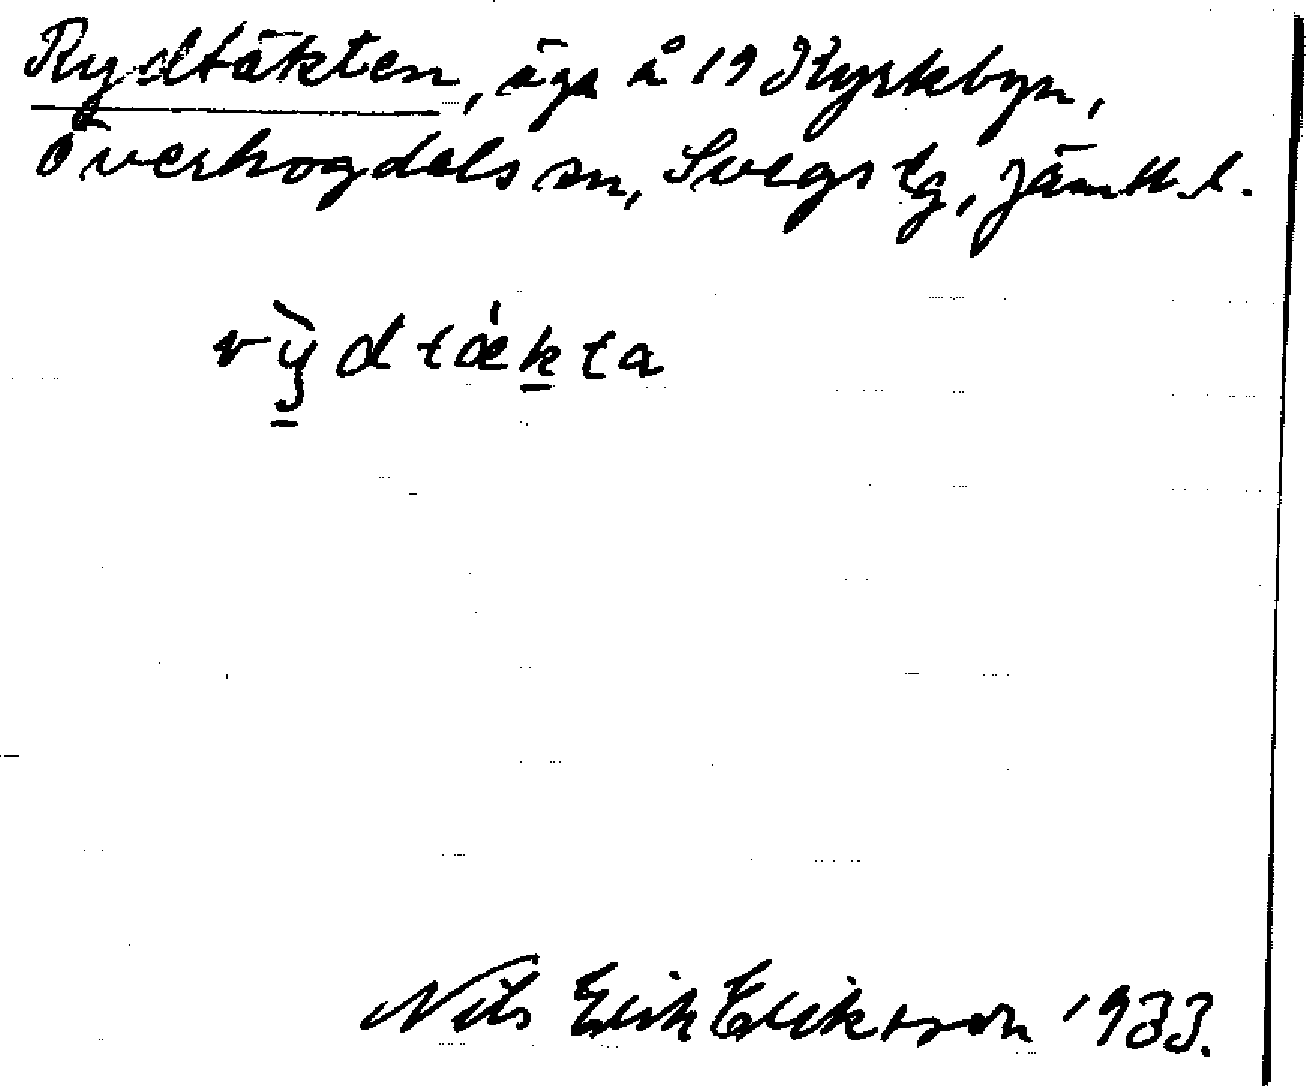 Rydtäkten, äga å 19 Kyrkbyn,
Överhogdals sn, Svegs tg, Jämtl. l.
rỳdtǽkta
Nils Erik Erikson 1933.